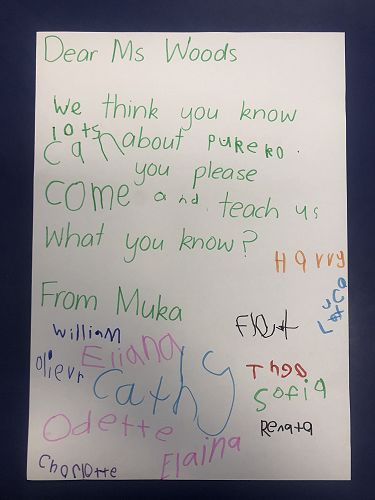 Dear Ms Woods
We think you know
lots about PUREKO.
Can you please
come and teach us
What you know?
Harry
From Muka
Luca
William
Eliana
Olievr
Cathy
Theo
Sofia
Odette
Renata
Elaina
Charlotte